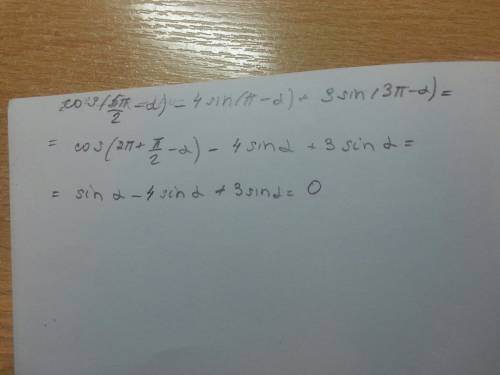 cos(5π/2 - α) - 4 sin(π - α) + 3 sin(3π - α) =
= cos(2π + π/2 - α) - 4 sin α + 3 sin α =
= sin α - 4 sin α + 3 sin α = 0